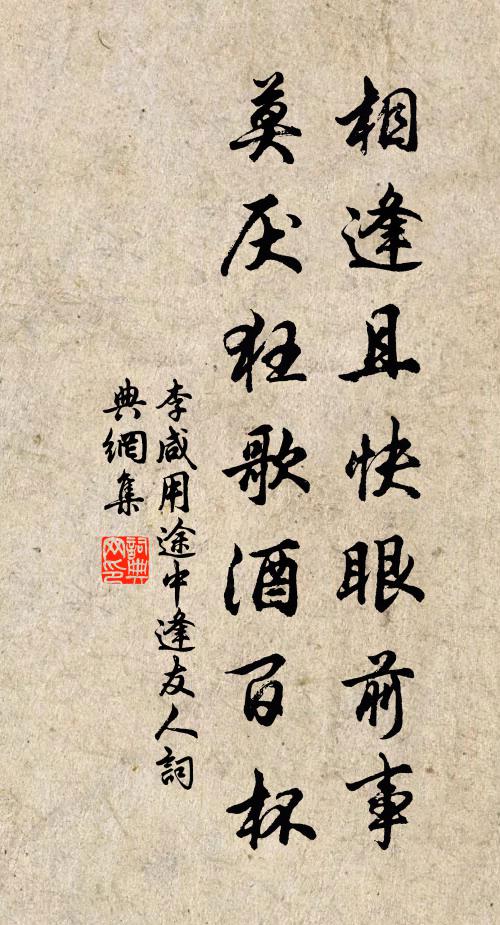 相逢且快眼前事
莫厌狂歌酒百杯
李咸用途中逢友人詞
典網集
詞典
网印